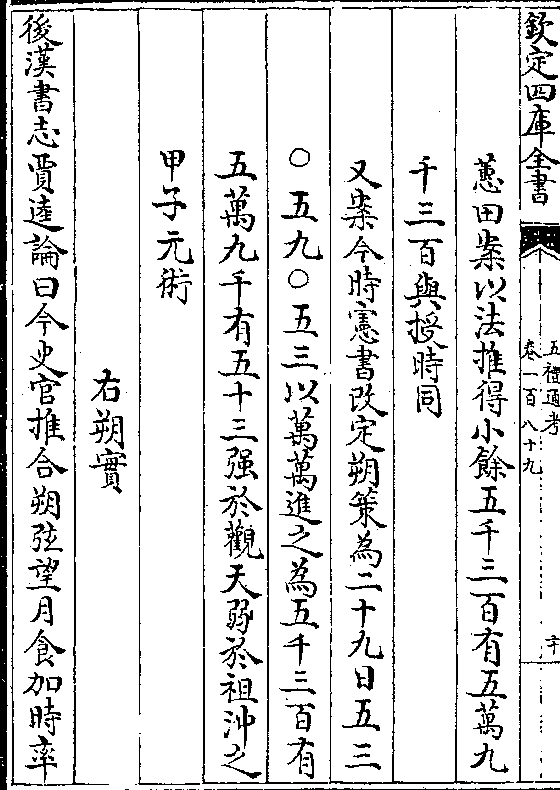 欽定四庫全書
五禮通考
卷一百八十九
十
蕙田案以法推得小餘五千三百有五萬九
千三百與授時同
又案今時憲書改定朔策為二十九日五三
○五九○五三以萬萬進之為五千三百有
五萬九千有五十三强於觀天弱於祖沖之
甲子元術
右朔實
後漢書志賈逵論曰今史官推合朔弦望月食加時率